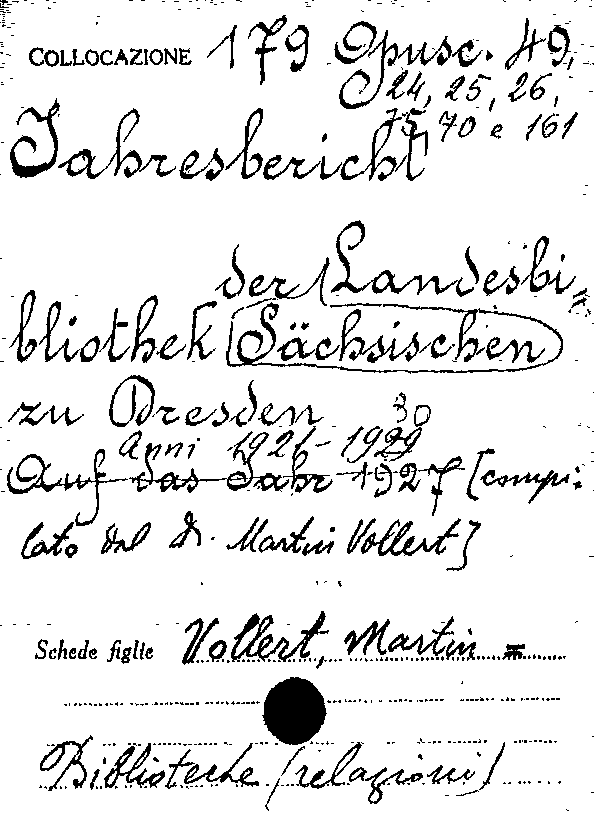 COLLOCAZIONE 179 Opusc. 49,
24, 25, 26,
75, 70 e 161
Jahresbericht
der Landesbi=
bliothek Sächsischen
zu Dresden 30
Anni 1926-1929
Auf das Jahr 1927 [compi-
lato dal dr. Martin Vollert]
Schede figlie Vollert, Martin =
Biblioteche (relazioni)